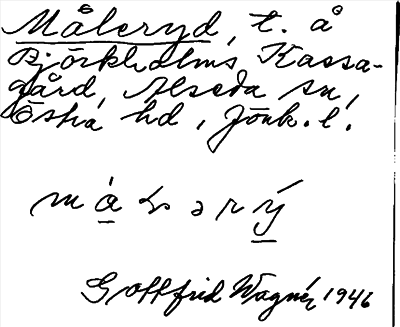 Måleryd, t. å
Björkholms Kassa-
gård, Alseda sn,
Östra hd, Jönk. l.
Gottfrid Wagnér 1946